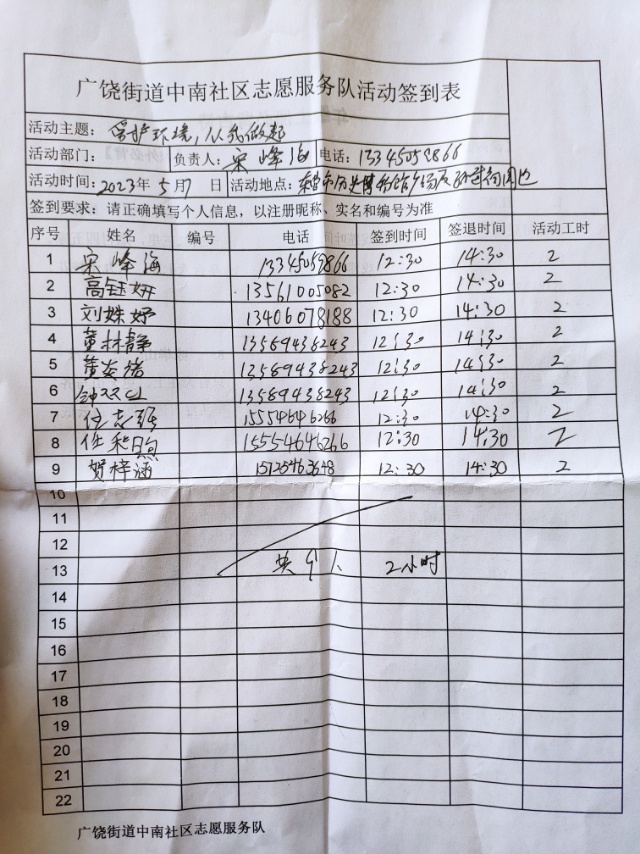 广饶街道中南社区志愿服务队活动签到表
活动主题：保护环境，从我做起
活动部门： 负责人：宋峰海 电话：13345059866
活动时间：2023年5月7日 活动地点：东营市历史博物馆广场及孙武祠周边
签到要求：请正确填写个人信息，以注册昵称、实名和编号为准
序号 姓名 编号 电话 签到时间 签退时间 活动工时
1 宋峰海 13345059866 12:30 14:30 2
2 高钰妍 13561005082 12:30 14:30 2
3 刘姝妤 13406078188 12:30 14:30 2
4 黄林静 13589438243 12:30 14:30 2
5 黄 13589438243 12:30 14:30 2
6 钟 13589438243 12:30 14:30 2
7 任志强 15554646266 12:30 14:30 2
8 任 15554646266 12:30 14:30 2
9 贺梓涵 12:30 14:30 2
10
11
12
13 共9人 2小时
14
15
16
17
18
19
20
21
22
广饶街道中南社区志愿服务队